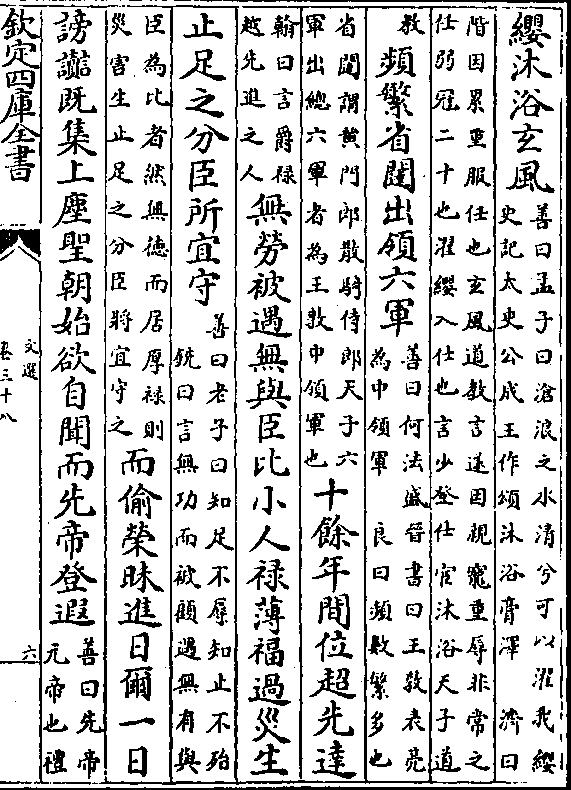 纓沐浴玄風
善曰孟子曰滄浪之水清兮可以濯我纓
史記太史公成王作頌沐浴膏澤 濟曰
階因累重服任也玄風道教言遂因親寵重辱非常之
仕弱冠二十也濯纓入仕也言少登仕宦沐浴天子道
教
頻繁省闥出領六軍
善曰何法盛晉書曰王敦表亮
為中領軍 良曰頻數繁多也
省闥謂黃門郎散騎侍郎天子六
軍出總六軍者為王敦中領軍也
十餘年間位超先達
翰曰言爵祿
越先進之人
無勞被遇無與臣比小人祿薄福過災生
止足之分臣所宜守
善曰老子曰知足不辱知止不殆
銑曰言無功而被顧遇無有與
臣為比者然無德而居厚祿則
災害生止足之分臣將宜守之
而偷榮昧進日爾一日
謗讟既集上塵聖朝始欲自聞而先帝登遐
善曰先帝
元帝也禮
欽定四庫全書
文選
卷三十八
六